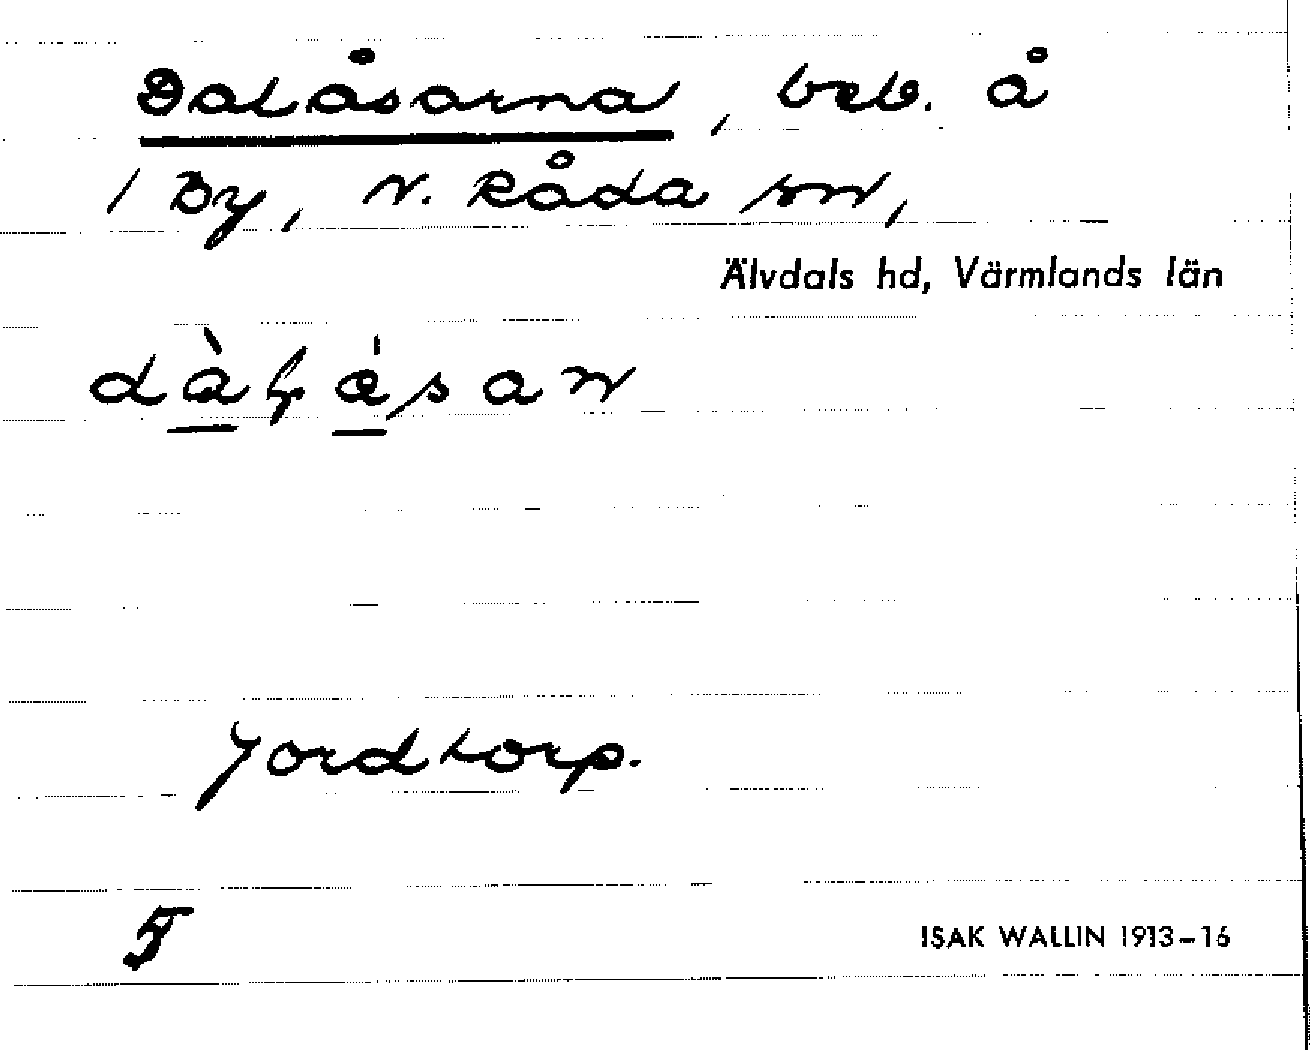 Dalåsarna, beb. å
1 By, N. Råda sn,
Älvdals hd, Värmlands län
Jordtorp.
5
ISAK WALLIN 1913–16